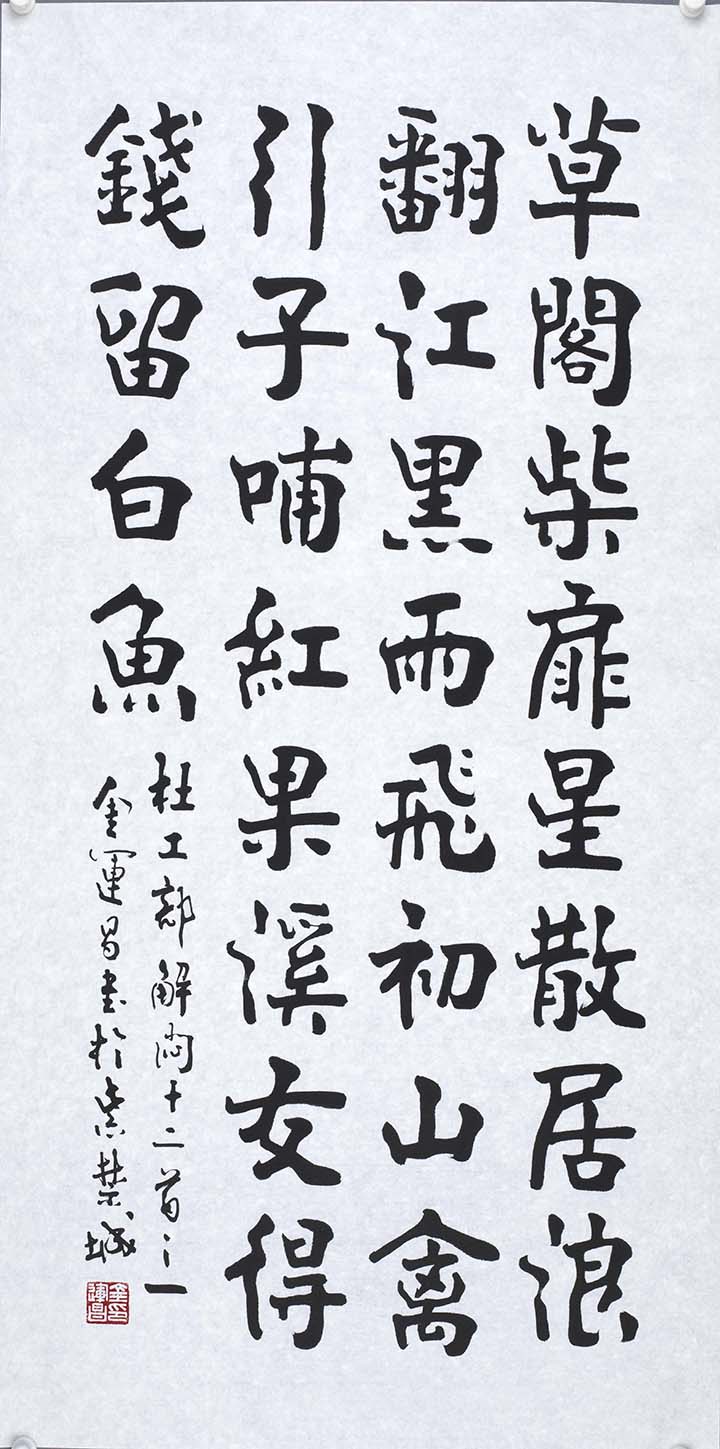 草閣柴扉星散居浪
翻江黑雨飛初山禽
引子哺紅果溪友得
錢留白魚
杜工部解悶十二首之一
金運昌書於紫禁城
金印
運昌